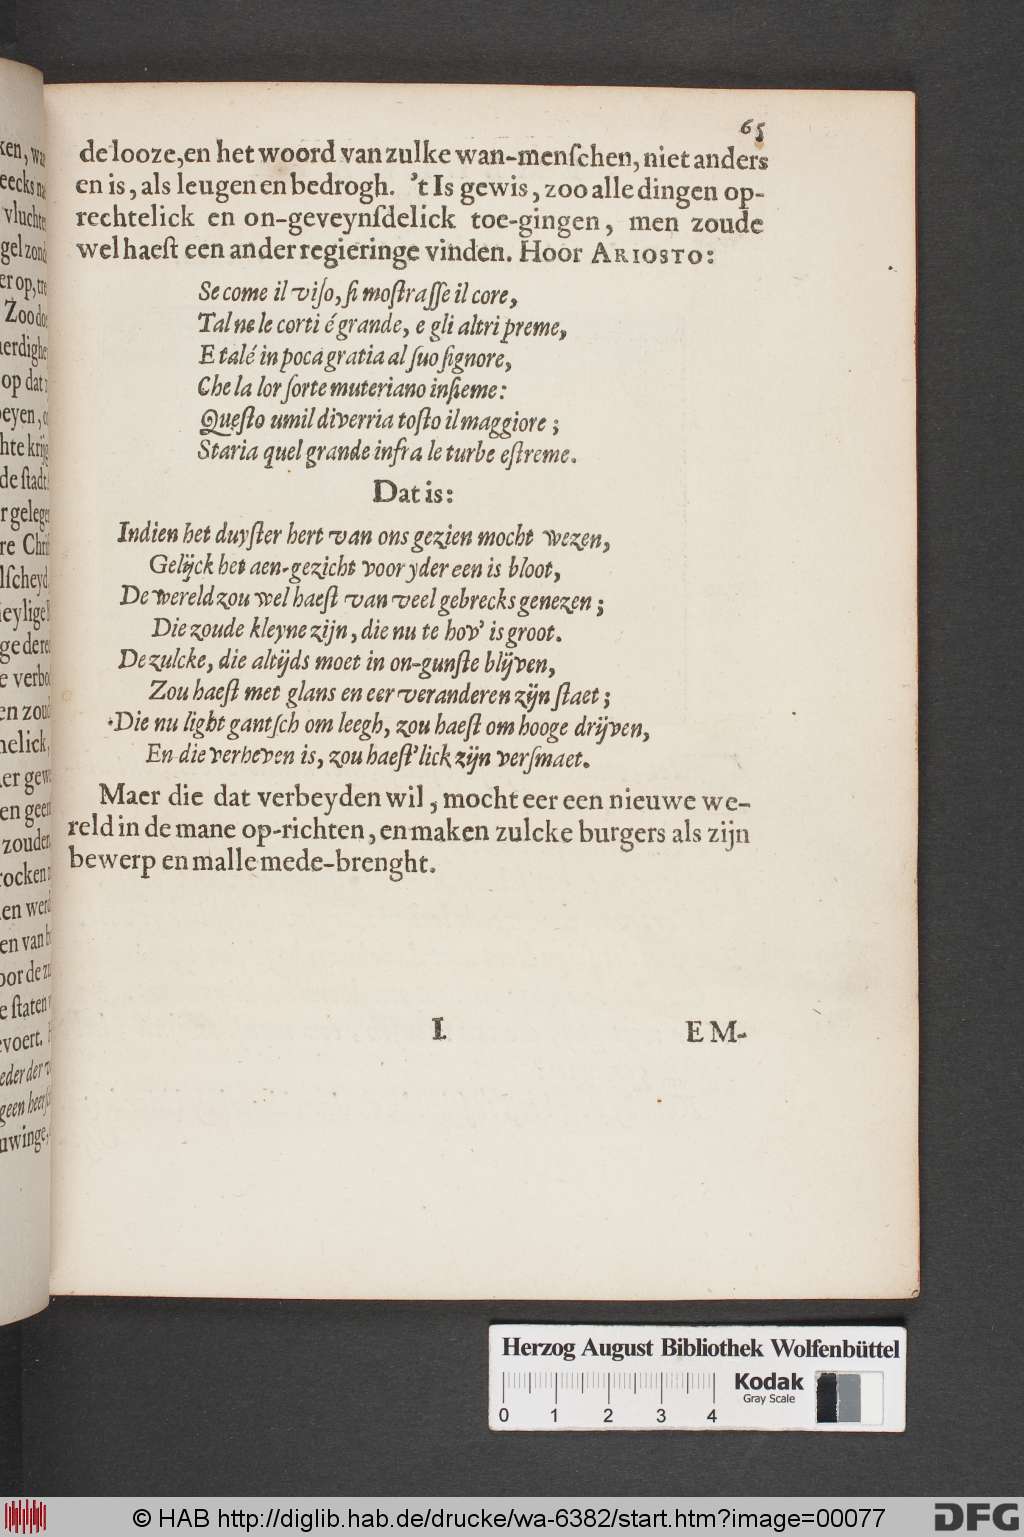 65
de looze, en het woord van zulke wan-menſchen, niet anders
en is, als leugen en bedrogh. 't Is gewis, zoo alle dingen op-
rechtelick en on-geveynſdelick toe-gingen, men zoude
wel haeſt een ander regieringe vinden. Hoor ARIOSTO:
Se come il viſo, ſi moſtraſſe il core,
Tal ne le corti é grande, e gli altri preme,
E talé in poca gratia al ſuo ſignore,
Che la lor ſorte muteriano inſieme:
Queſto umil diverria toſto il maggiore;
Staria quel grande infra le turbe eſtreme.
Dat is:
Indien het duyſter hert van ons gezien mocht wezen,
Gelijck het aen-gezicht voor yder een is bloot,
De wereld zou wel haeſt van veel gebrecks genezen;
Die zoude kleyne zijn, die nu te hov' is groot.
De zulcke, die altijds moet in on-gunſte blijven,
Zou haeſt met glans en eer veranderen zijn ſtaet;
Die nu light gantſch om leegh, zou haeſt om hooge drijven,
En die verheven is, zou haeſt'lick zijn verſmaet.
Maer die dat verbeyden wil, mocht eer een nieuwe we-
reld in de mane op-richten, en maken zulcke burgers als zijn
bewerp en malle mede-brenght.
I
EM-
Herzog August Bibliothek Wolfenbüttel
Kodak
Gray Scale
0 1 2 3 4
© HAB http://diglib.hab.de/drucke/wa-6382/start.htm?image=00077
DFG